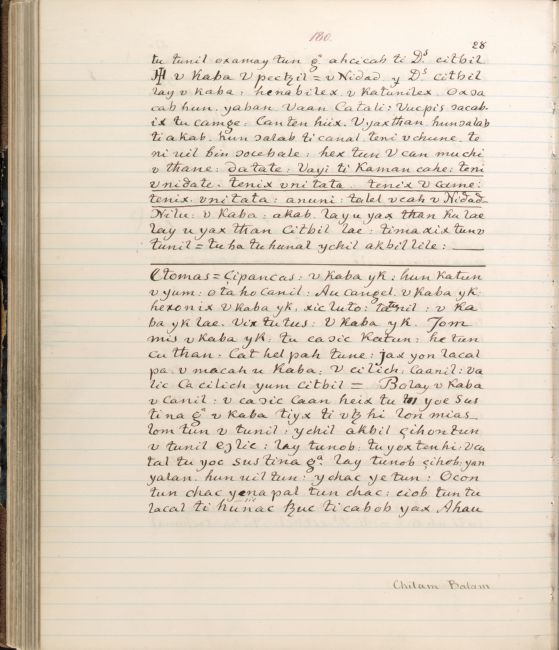 180.
28
tu tunil oxamay tun gª ahcicab ti Dˢ citbil
v Kaba V peetzil = v Nidad. y Dˢ citbil
lay v kaba: henabilex. v katunilex. Oxsa
cab hun. yaban. Vaan Catali: Vucpis sacab.
ix tu camge. Can ten hiix. V yax than hun salab
ti akab. hun salab ti canal. teni v chune. te
ni uil bin socebale: hex tun V can muchi
v thane: datate: Vayi ti Kaman cahe: teni
v nidate: tenix v nitata. tenix v came:
tenix. v nitata: anuni: talel v cah v Nidad
Nilu: v Kaba: akab. lay u yax than ku lae
lay u yax than Citbil lae: timaxix tun v
tunil = tu ba tu hunal ychil akbillile:
Otomas = Çipancas: v kaba yk: hun katun
v yum: otahocanil: Au cangel. v kaba yk:
hexonix v kaba yk, xicluto: tatenil: v ka
ba yk lae. Vix tutus: v kaba yk. Jom
mis v kaba yk: tu casic katun: he tun
cu than. Cat hel pah tune: jax yon lacal
pa. v macah u kaba: V cilich: Caanil: va
lic. Ca cilich yum citbil = Bolay v kaba
v canil: v casic caan heix tu yoc sus
tina gª v kaba tiyx ti vtz hi lon mias
lom tun v tunil: ychil akbil çihontun
v tunil ezlic: lay tunob: tu yoxtenhi: vcu
tal tu yoc sustina gª. lay tunob çihob: yan
yalan. hun uil tun: ychac ye tun: Ocon
tun chac yenapal tun chac: eiob tun tu
lacal ti hunac tzuc ti cabob yax Ahau
Chilam Balam